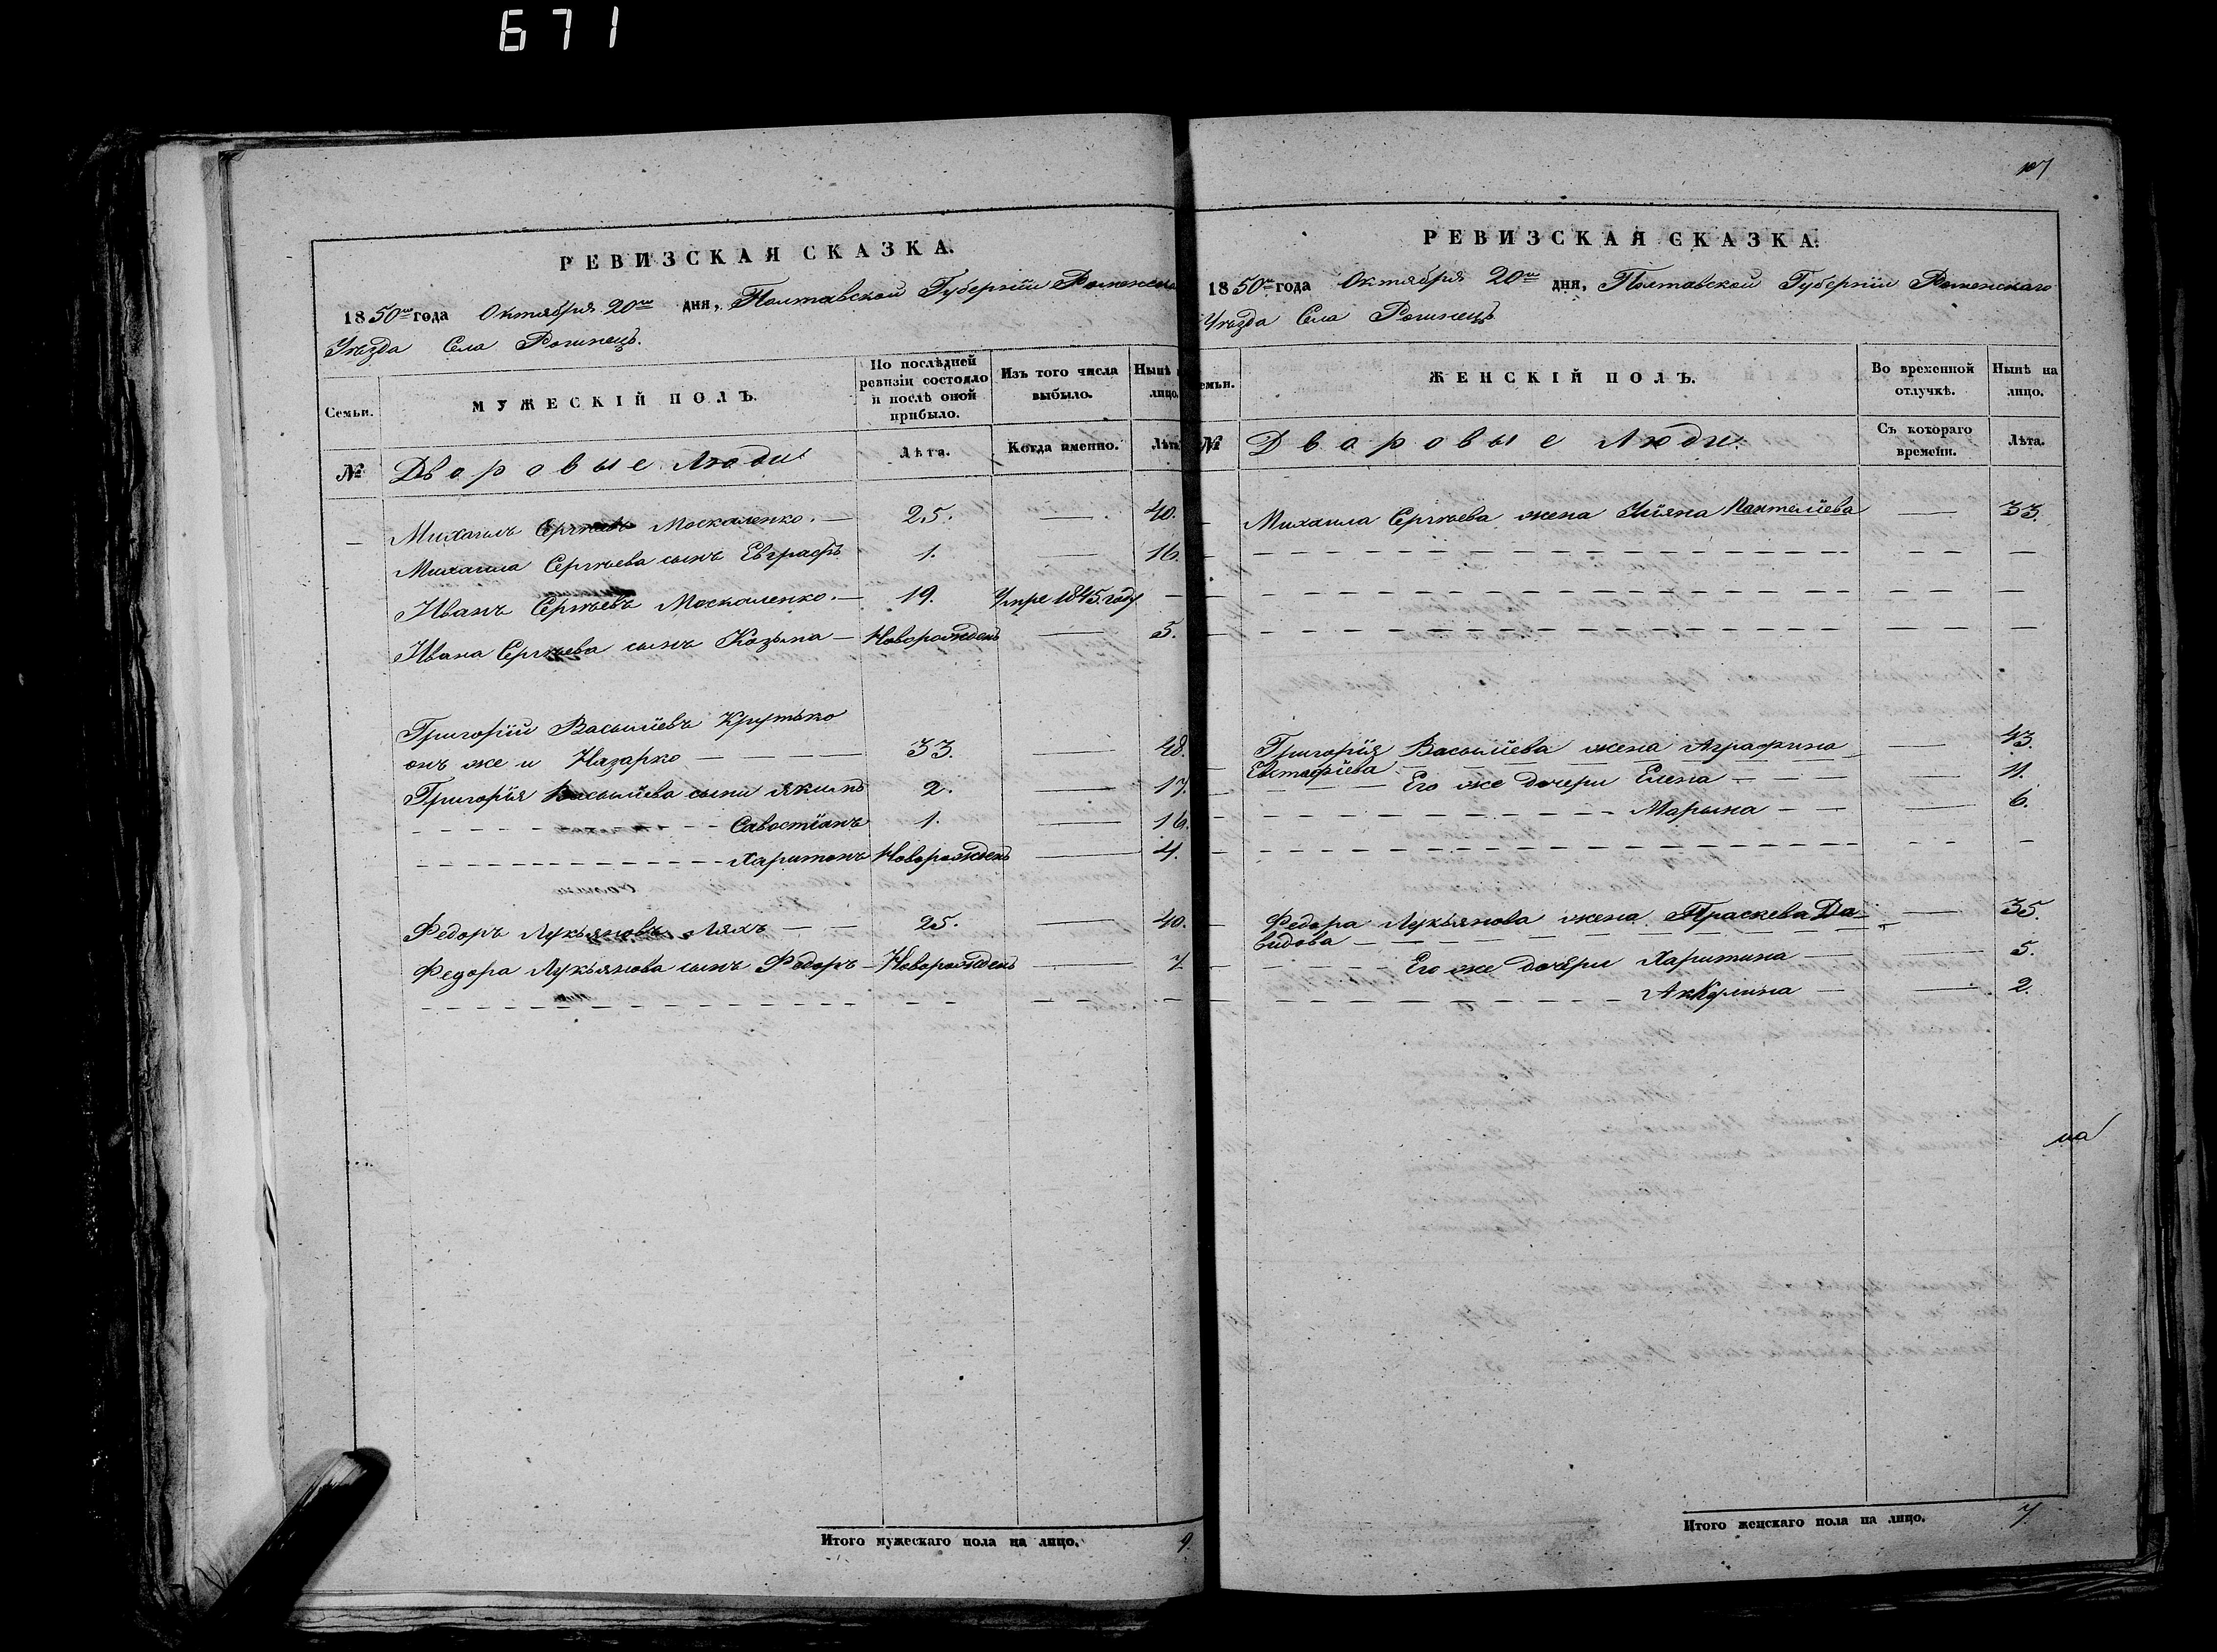 671
РЕВИЗСКАЯ СКАЗКА.
1850го года Октября 20го дня, Полтавской Губернiи Роменска
Уѣзда Села Рогинецъ.
Семьи.
МУЖЕСКІЙ ПОЛЪ.
По послѣдней ревизіи состояло и послѣ оной прибыло.
Изъ того числа выбыло.
Нынѣ на лицо.
№
Дворовые Люди
Лѣта.
Когда именно.
Лѣта
— Михаилъ Сергѣевъ Москаленко. — 25. — 40.
Михаила Сергѣева сынъ Евграфъ 1. — 16.
Иванъ Сергѣевъ Москаленко. — 19. Умре 1845 году —
Ивана Сергѣева сынъ Козьма — Новорожденъ — 5.
Григорій Васильевъ Крутько
онъ же и Назарко — 33. — 48.
Григорія Васильева сыни Якимъ 2. — 17.
Савостіанъ 1. — 16.
Харитонъ Новорожденъ — 4.
Федоръ Лукьяновъ Ляхъ — 25. — 40.
Федора Лукьянова сынъ Федоръ — Новорожденъ — 7
Итого мужескаго пола на лицо. 9.
107
РЕВИЗСКАЯ СКАЗКА.
1850го года Октября 20го дня, Полтавской Губернiи Роменскаго
Уѣзда Села Рогинецъ
емьи.
ЖЕНСКІЙ ПОЛЪ.
Во временной отлучкѣ.
Нынѣ на лицо.
№
Двaровые Люди
Съ котораго времени.
Лѣта.
Михаила Сергѣева жена Уліяна Пантелiева — 33.
Григорія Васильева жена Аграфина — 43.
Евстафіева
Его же дочери Елена — 11.
Марьина — 6.
Федора Лукьянова жена Праскева Да- — 35.
видова
Его же дочери Харитина — 5.
Аккулина — 2.
на
Итого женскаго пола на лицо. 7